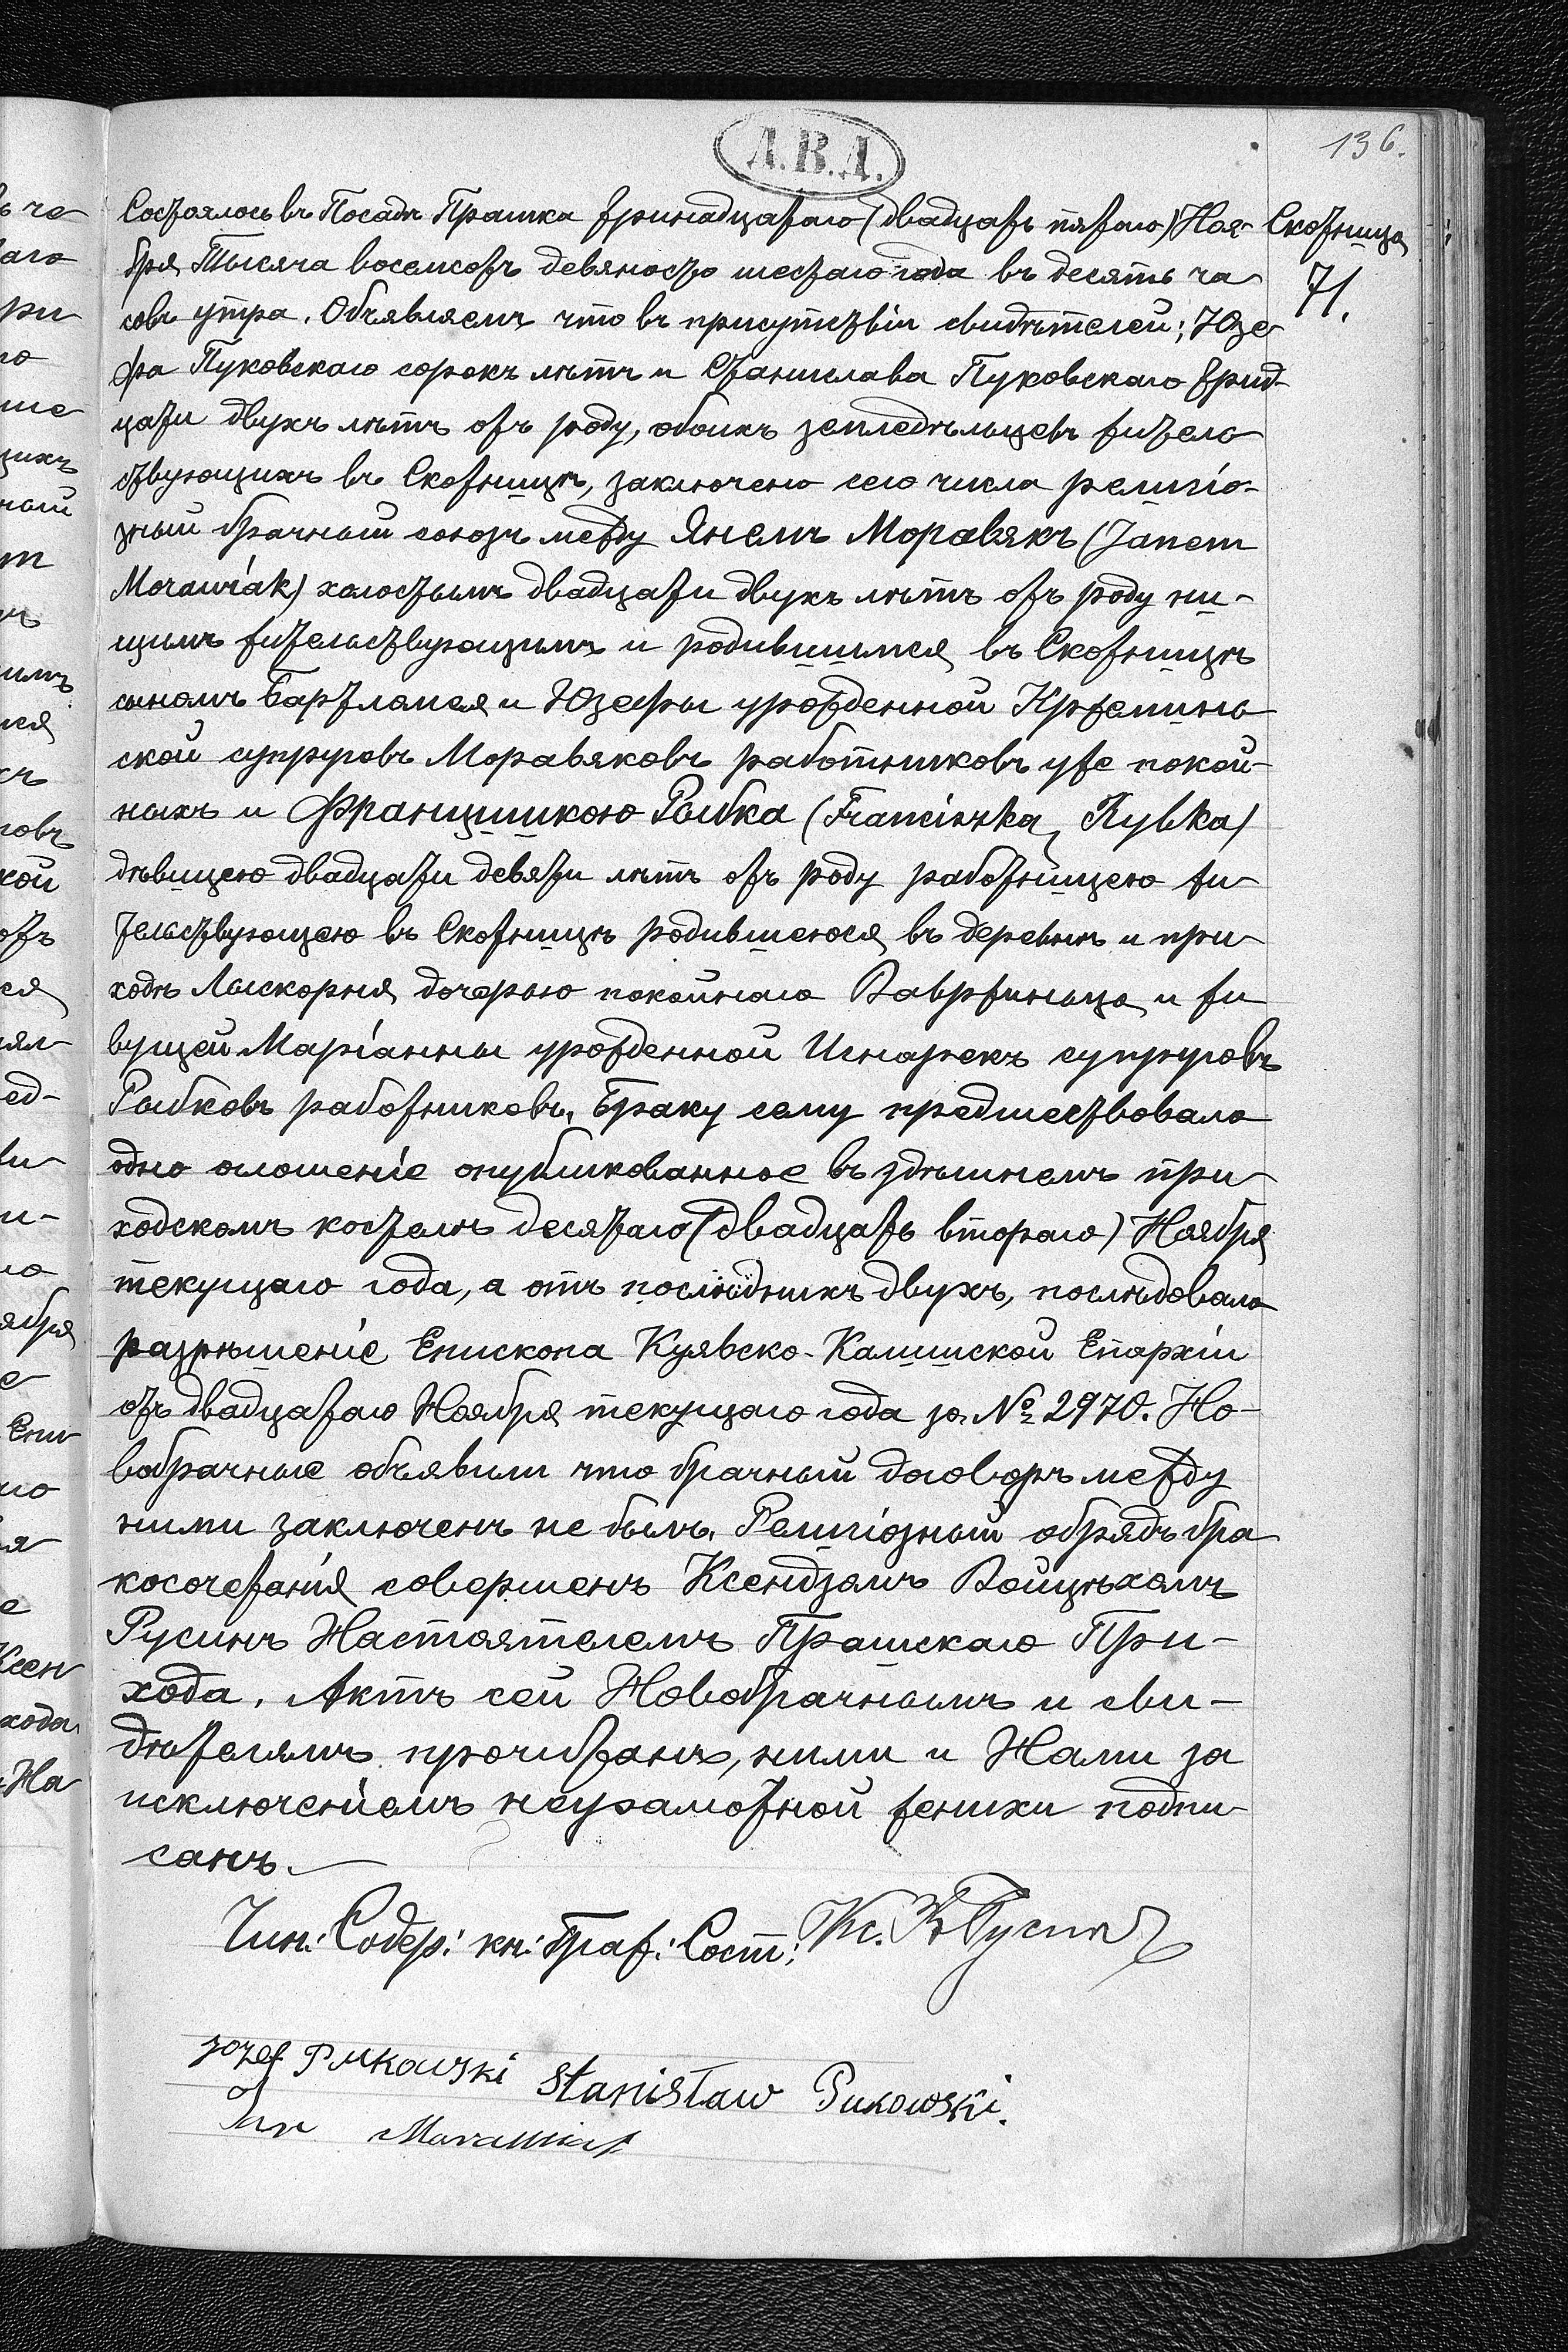 136.
А.В.Д.
Состоялось въ Посадѣ Прашка тринадцатаго (двадцать пятаго) Ноя-
Скотница
71.
бря Тысяча восемсотъ девяносто шестаго года въ десять ча
совъ утра. Объявляемъ что въ присутствіи свидѣтелей; Юзе
фа Пуковскаго сорокъ лѣтъ и Станислава Пуковскаго трид-
цати двухъ лѣтъ отъ роду, обоихъ земледѣльцевъ жителъ
ствующихъ въ Скотницѣ, заключено сего числа религіо-
зный брачный союзъ между Яномъ Моравякъ (Janem
Morawiak) холостымъ двадцати двухъ лѣтъ отъ роду ни-
щимъ жительствующимъ и родившимся въ Скотницѣ
сыномъ Бартломея и Юзефы урожденной Кржеминь
ской супруговъ Моравяковъ работниковъ уже покой-
ныхъ и Францишкою Рыбка (Franciszka Rybka)
дѣвицею двадцати девяти лѣтъ отъ роду работницею жи
тельствующею въ Скотницѣ родившеюся въ деревнѣ и при
ходѣ Лыскорня дочерью покойнаго Вавржиньца и жи
вущей Маріанны урожденной Игнарекъ супруговъ
Рыбковъ работниковъ. Браку сему предшествовало
одно оглошеніе опубликованное въ здѣшнемъ при
ходскомъ костелѣ десятаго (двадцать втораго) Ноября
текущаго года, а отъ послѣднихъ двухъ, послѣдовало
разрѣшеніе Епископа Куявско-Калишской Епархіи
отъ двадцатаго Ноября текущаго года за № 2970. Но-
вобрачные объявили что брачный договоръ между
ними заключенъ не былъ. Религіозный обрядъ бра
косочетанія совершенъ Ксендзомъ Войцѣхомъ
Русинъ Настоятелемъ Прашскаго При-
хода. Актъ сей Новобрачнымъ и сви-
дѣтелямъ прочитанъ, ними и Нами за
исключеніемъ неграмотной женихи подпи
санъ.
Чин: Содер: кн: Граж: Сост: Кс. В Русинъ
Jozef Pukowski Stanisław Pukowski.
Jan Morawiak